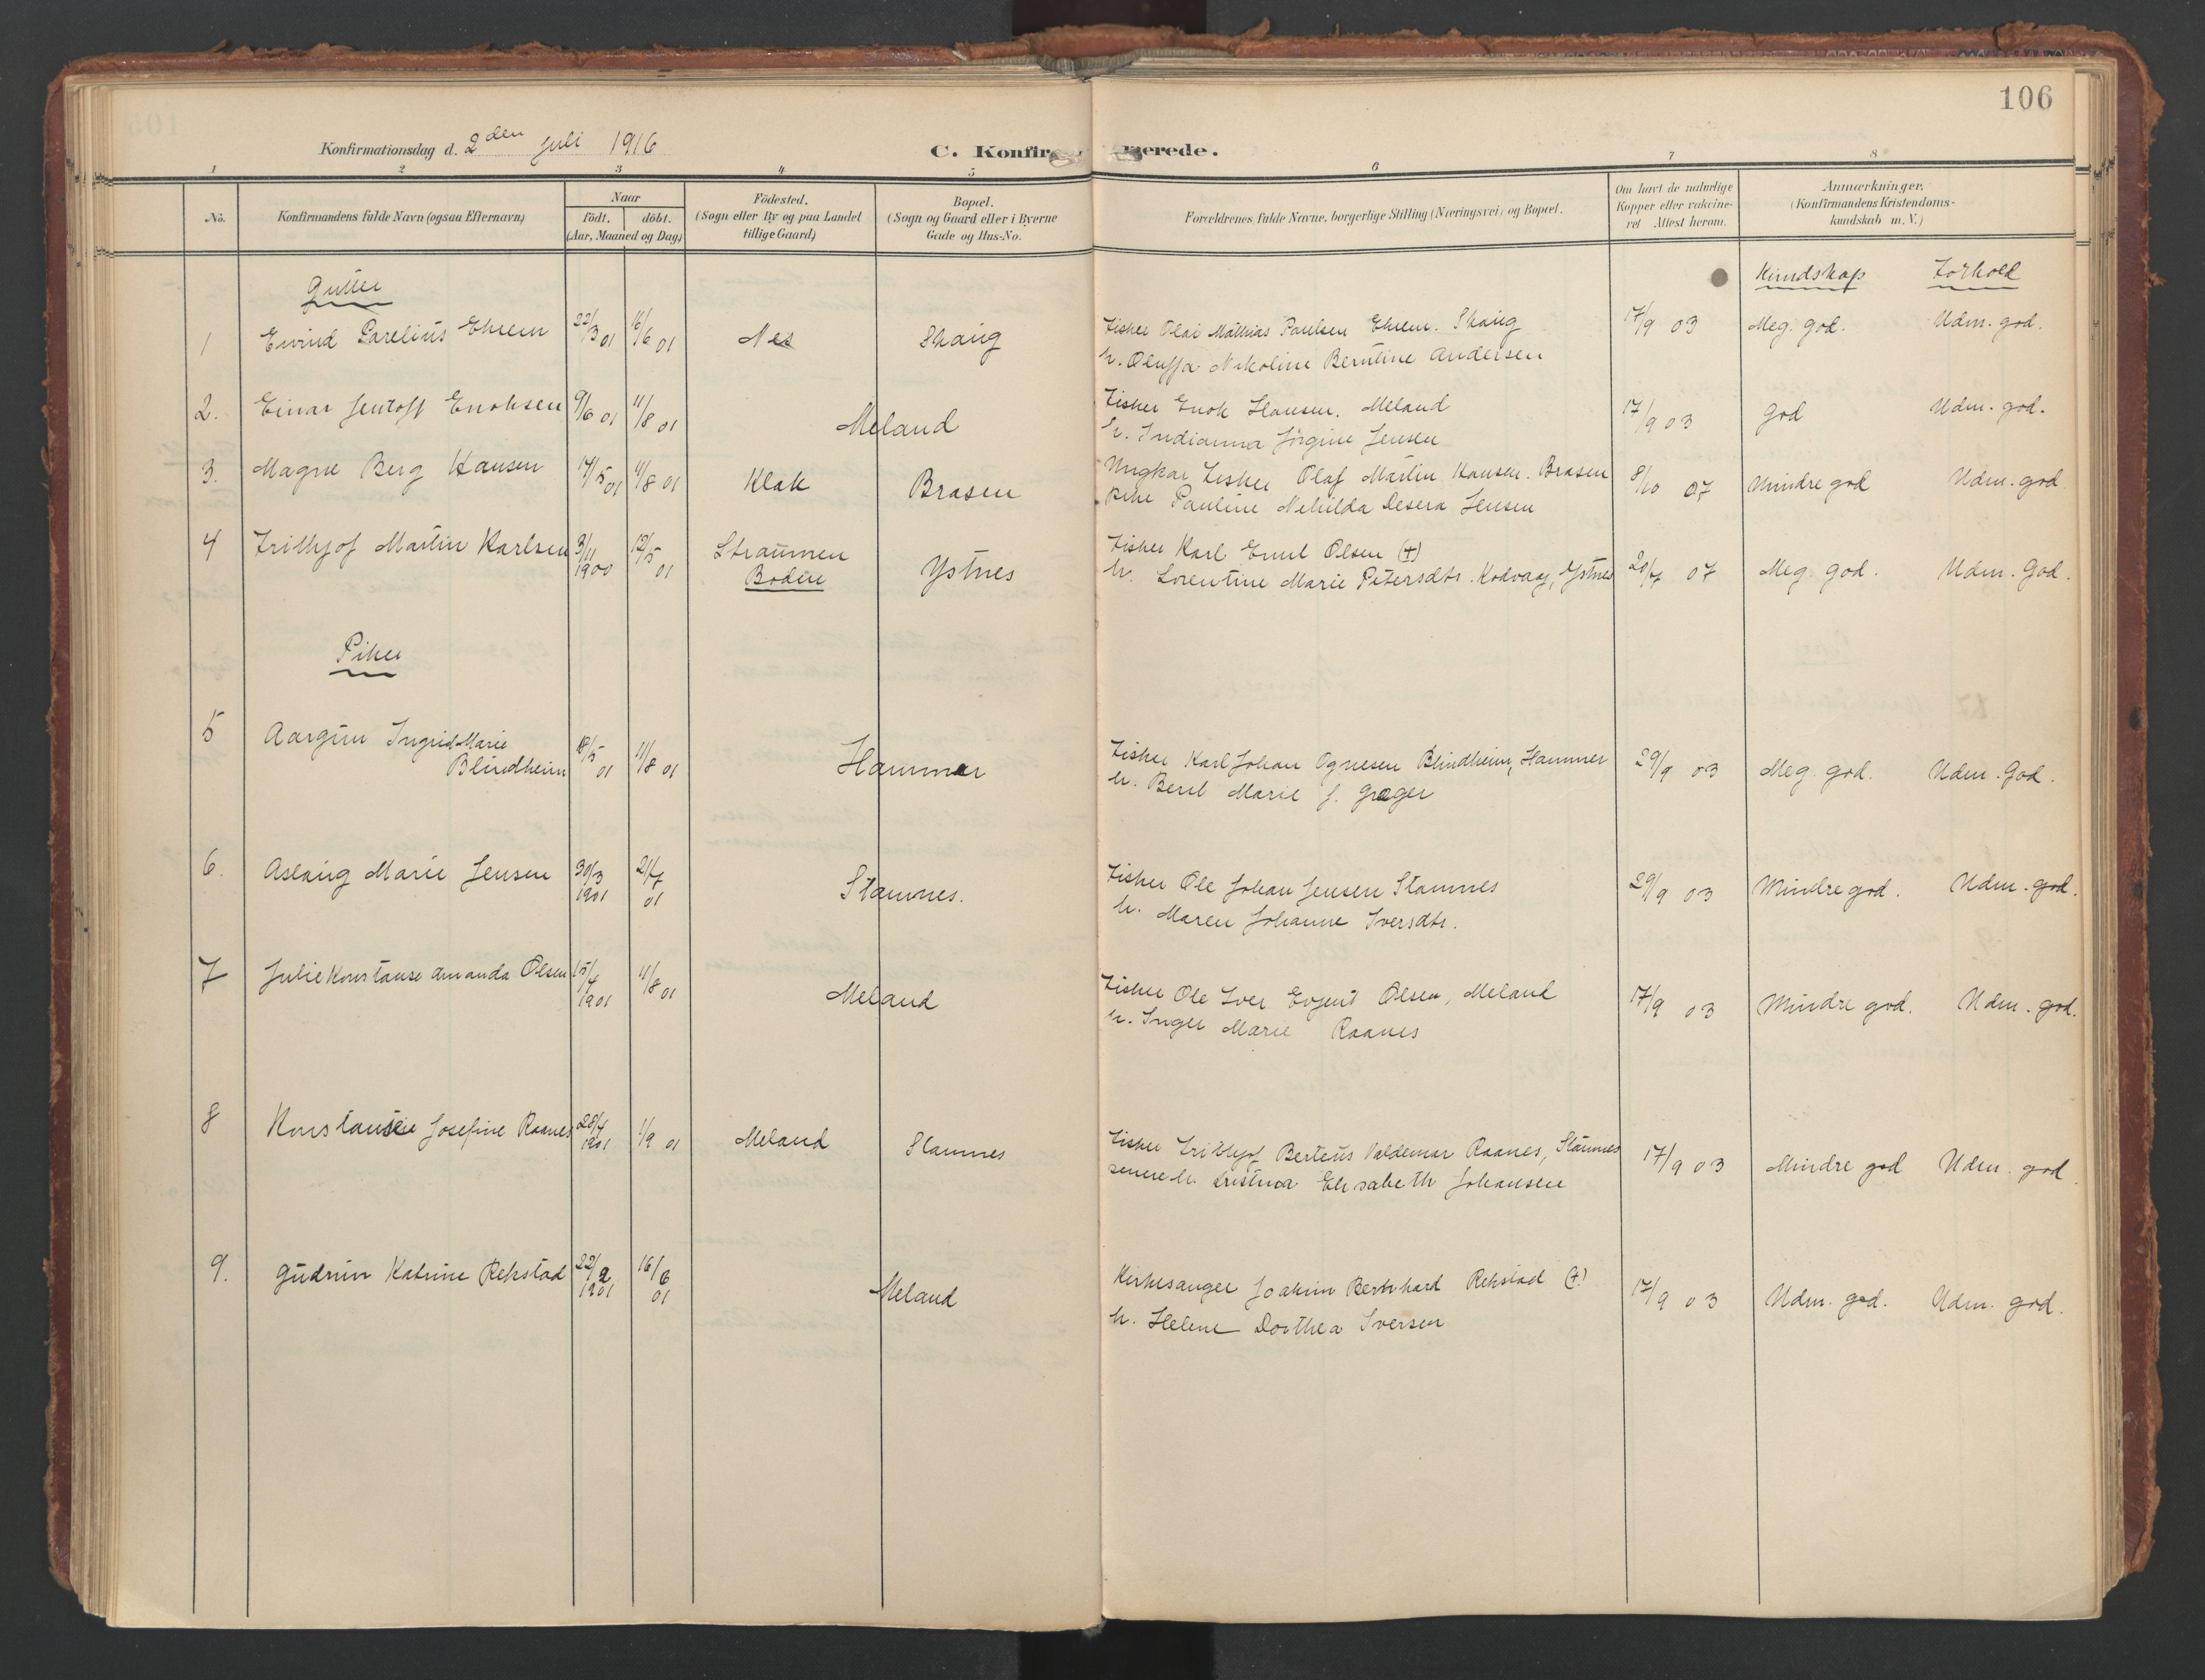 106
Konfirmationsdag d. 2den Juli 1916
C. Konfirmerede.
1 2 3 4 5 6 7 8
No.
Konfirmandens fulde Navn (ogsaa Efternavn)
Naar
födt. döbt.
(Aar, Maaned og Dag)
Födested.
(Sogn eller By og paa Landet
tillige Gaard)
Bopæl.
(Sogn og Gaard eller i Byerne
Gade og Hus-No.
Forældrenes fulde Navne, borgerlige Stilling (Næringsvei) og Bopæl.
Om havt de naturlige
Kopper eller vakcine-
ret Attest herom.
Anmærkninger.
(Konfirmandens Kristendoms-
kundskab m. V.)
Kundskap Forhold
Gutter
1 Eivind Parelius Ehrem 22/3 01 16/6 01 Nes Skaug Fisker Olai Mathias Paulsen Ehrem. Skaug 17/9 03 Meg. god. Udm. god.
h. Oluffa Nikoline Berntine Andersen
2. Einar Jentoft Enoksen 9/6 01 11/8 01 Meland Fisker Enok Hansen. Meland 17/9 03 god Udm. god.
h. Indianna Jörgine Jensen
3. Magne Berg Hansen 14/5 01 11/8 01 Klak Brasen Ungkar Fisker Olaf Martin Hansen. Brasen 8/10 07 Mindre god Udm. god
Pike Pauline Desera Jensen
4 Frithjof Martin Karlsen 3/11 1900 12/5 01 Straumen Bodin Ystnes Fisker Karl Emil Olsen (+)
h. Lorentine Marie Petersdtr. Kodvaag, Ystnes 20/7 07 Meg. god. Udm. God.
Piker
5 Aargun Ingrid Marie
Blindheim 18/5 01 11/8 01 Hammer Fisker Karl Johan Ognesen Blindheim, Hammer 29/9 03 Meg. god. Udm. God.
h. Berit Marie f. Græger
6. Aslaug Marie Jensen 30/3 1901 21/7 01 Stamnes. Fisker Ole Johan Jensen Stamnes 29/9 03 Mindre god. Udm. god.
h. Maren Johanne Iversdtr.
7 Julie Konstanse Amanda Olsen 15/4 1901 11/8 01 Meland Fisker Ole Iver Olsen, Meland 17/9 03 Mindre god. Udm. god.
h. Inger Marie Raanes
8 Konstanse Josefine Raanes 28/4 1901 1/9 01 Meland Stamnes Fisker Frithjof Berteus Valdemar Raanes, Stamnes 17/9 03 Mindre god Udm. god.
senere h. Kristina Elisabeth Johansen
9. Gudrun Katrine Rekstad 22/2 1901 16/6 01 Meland Kirkesanger Joakim Bernhard Rekstad (+) 17/9 03 Udm. god. Udm. god.
h. Helene Dorthea Iversen